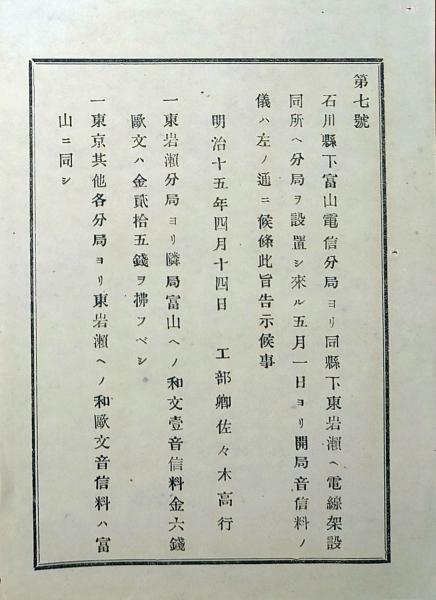 第七號
石川縣下富山電信分局ヨリ同縣下東岩瀬ヘ電線架設
同所ヘ分局ヲ設置シ來ル五月一日ヨリ開局音信料ノ
儀ハ左ノ通ニ候條此旨告示候事
明治十五年四月十四日　工部卿佐々木高行
一東岩瀬分局ヨリ隣局富山ヘノ和文壹音信料金六錢
歐文ハ金貳拾五錢ヲ拂フベシ
一東京其他各分局ヨリ東岩瀬ヘノ和歐文音信料ハ富
山ニ同シ